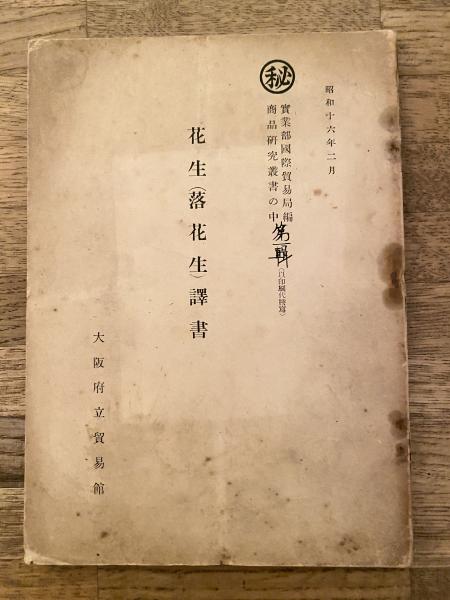 昭和十六年二月
㊙
實業部國際貿易局編
商品研究叢書の中
第一輯
(以印刷代謄寫)
花生(落花生)譯書
大阪府立貿易館